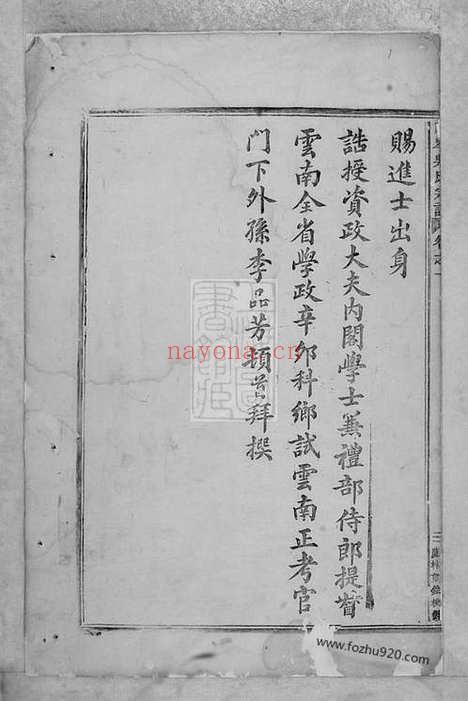 賜進士出身
誥授資政大夫內閣學士兼禮部侍郎提督
雲南全省學政辛卯科鄉試雲南正考官
門下外孫李品芳頓首拜撰
nayona.cn
www.fozhu920.com